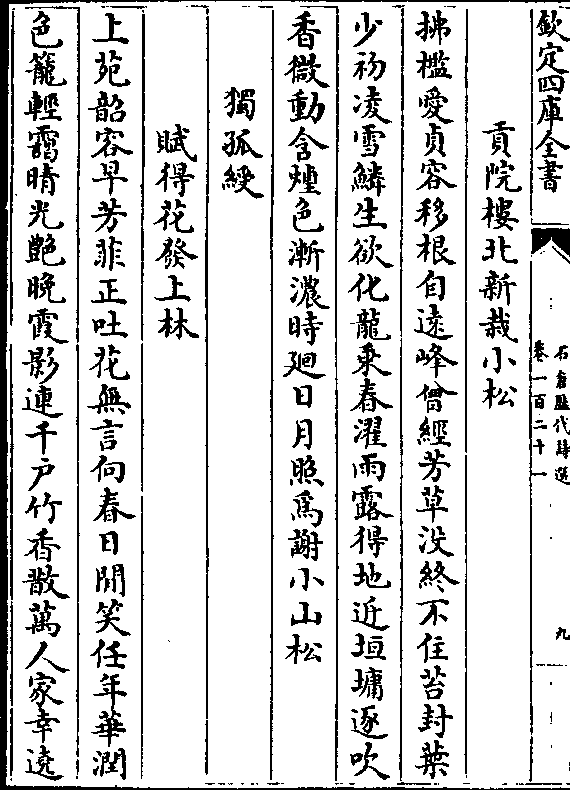 欽定四庫全書
石倉歴代詩選
卷一百二十一
九
貢院樓北新栽小松
拂檻愛貞容移根自遠峰曾經芳草没終不任苔封葉
少初凌雪鱗生欲化龍乗春濯雨露得地近垣墉逐吹
香微動含煙色漸濃時廻日月照為謝小山松
獨孤綬
賦得花發上林
上苑韶容早芳菲正吐花無言向春日閒笑任年華潤
色籠輕靄晴光艶晚霞影連千戸竹香散萬人家幸遶